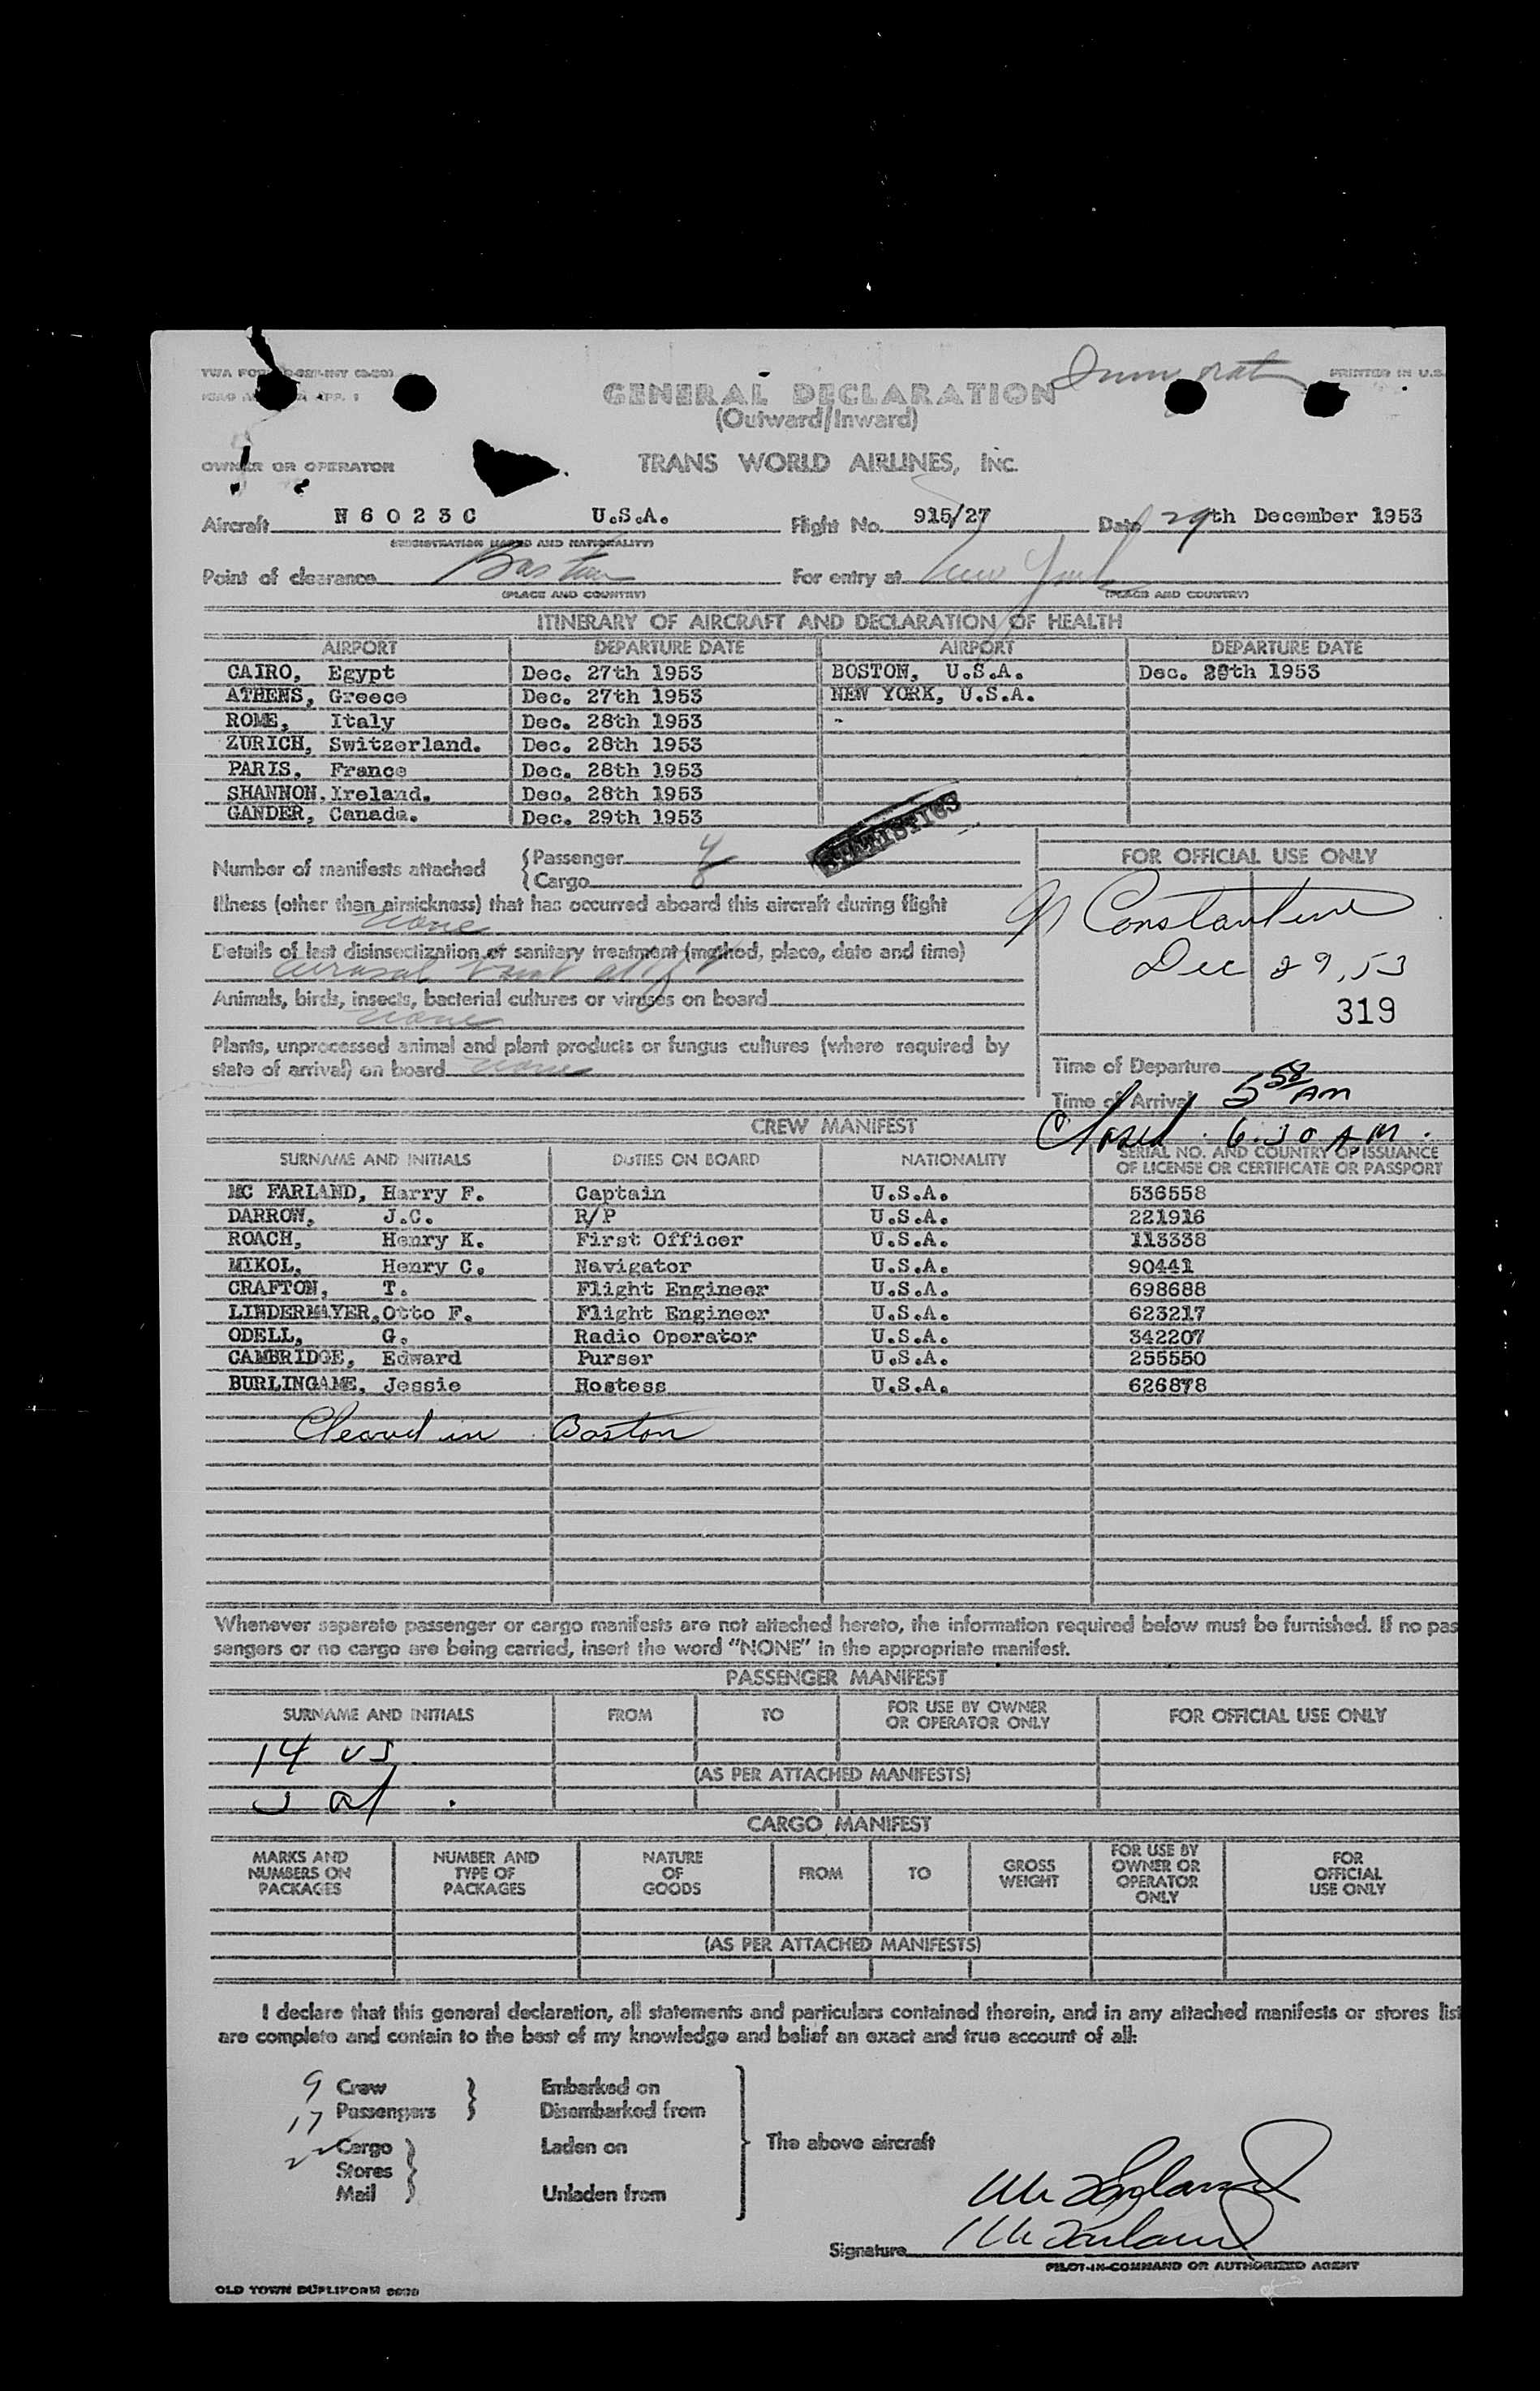 PRINTED IN U.S.
GENERAL DECLARATION
(Outward/Inward)
OWNER OR OPERATOR TRANS WORLD AIRLINES, INC.
Aircraft N 6 0 2 3 C U.S.A. Flight No. 915/27 Date 29th December 1953
(REGISTRATION MARKS AND NATIONALITY)
Point of clearance Boston For entry at New York
(PLACE AND COUNTRY) (PLACE AND COUNTRY)
ITINERARY OF AIRCRAFT AND DECLARATION OF HEALTH
AIRPORT DEPARTURE DATE AIRPORT DEPARTURE DATE
CAIRO, Egypt Dec. 27th 1953 BOSTON, U.S.A. Dec. 29th 1953
ATHENS, Greece Dec. 27th 1953 NEW YORK, U.S.A.
ROME, Italy Dec. 28th 1953 -
ZURICH, Switzerland. Dec. 28th 1953
PARIS, France Dec. 28th 1953
SHANNON. Ireland. Dec. 28th 1953
GANDER, Canada. Dec. 29th 1953
STATISTICS
Number of manifests attached { Passenger 4
{ Cargo
FOR OFFICIAL USE ONLY
Illness (other than airsickness) that has occurred aboard this aircraft during flight
none
Constantine
Dec 29, 53
319
Details of last disinsectization or sanitary treatment (method, place, date and time)
Aerosol
Animals, birds, insects, bacterial cultures or viruses on board
none
Plants, unprocessed animal and plant products or fungus cultures (where required by
state of arrival) on board none
Time of Departure
Time of Arrival 5 58 AM
Closed . 6.30 AM .
CREW MANIFEST
SURNAME AND INITIALS DUTIES ON BOARD NATIONALITY SERIAL NO. AND COUNTRY OF ISSUANCE
OF LICENSE OR CERTIFICATE OR PASSPORT
MC FARLAND, Harry F. Captain U.S.A. 536558
DARROW, J.C. R/P U.S.A. 221916
ROACH, Henry K. First Officer U.S.A. 113338
MIKOL, Henry C. Navigator U.S.A. 90441
CRAFTON, T. Flight Engineer U.S.A. 698688
LINDERMAYER, Otto F. Flight Engineer U.S.A. 623217
ODELL, G. Radio Operator U.S.A. 342207
CAMBRIDGE, Edward Purser U.S.A. 255550
BURLINGAME, Jessie Hostess U.S.A. 626878
Cleared in Boston
Whenever separate passenger or cargo manifests are not attached hereto, the information required below must be furnished. If no pas
sengers or no cargo are being carried, insert the word "NONE" in the appropriate manifest.
PASSENGER MANIFEST
SURNAME AND INITIALS FROM TO FOR USE BY OWNER
OR OPERATOR ONLY FOR OFFICIAL USE ONLY
14 US
(AS PER ATTACHED MANIFESTS)
3 al
CARGO MANIFEST
MARKS AND
NUMBERS ON
PACKAGES NUMBER AND
TYPE OF
PACKAGES NATURE
OF
GOODS FROM TO GROSS
WEIGHT FOR USE BY
OWNER OR
OPERATOR
ONLY FOR
OFFICIAL
USE ONLY
(AS PER ATTACHED MANIFESTS)
I declare that this general declaration, all statements and particulars contained therein, and in any attached manifests or stores list
are complete and contain to the best of my knowledge and belief an exact and true account of all:
9 Crew Embarked on
17 Passengers Disembarked from
Cargo Laden on The above aircraft
Stores
Mail Unladen from
McFarland
Signature McFarland
PILOT-IN-COMMAND OR AUTHORIZED AGENT
OLD TOWN DUPLIFORM